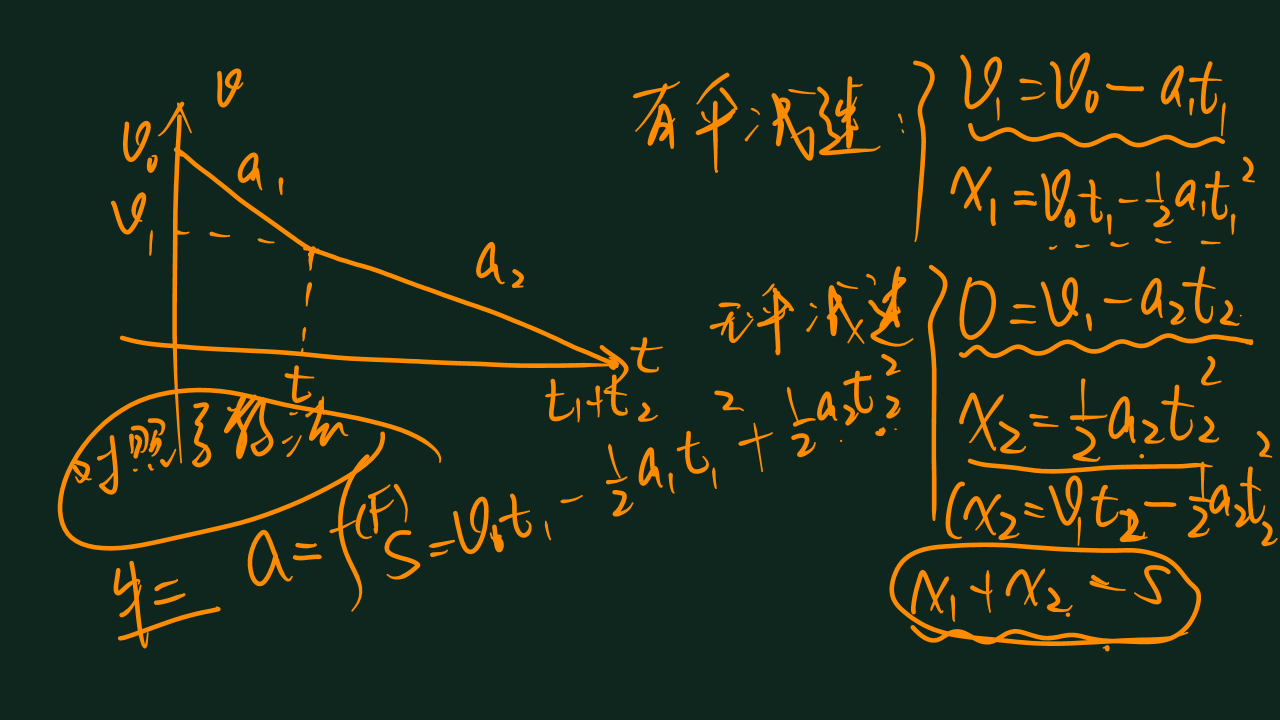 v
v₀
a₁
v₁
a₂
t
t₁
t₁+t₂
有平减速:
v₁=v₀-a₁t₁
x₁=v₀t₁-½a₁t₁²
无平减速
0=v₁-a₂t₂
x₂=½a₂t₂²
(x₂=v₁t₂-½a₂t₂²
x₁+x₂=S
对照
牛二
a=f(F)
S=v₀t₁-½a₁t₁²+½a₂t₂²